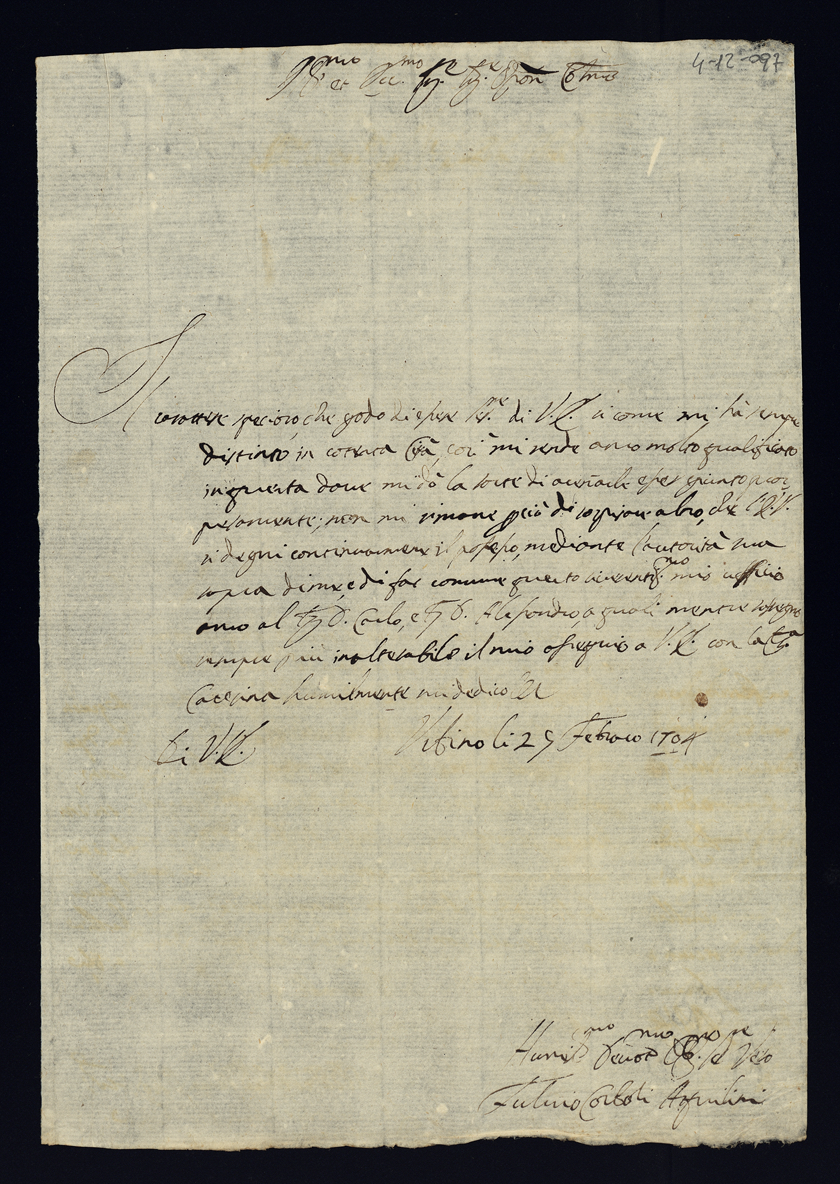 4-12-097
Ill.mo et Sig.re Sig.re Pron Colmo
Il carattere specioso, che godo di essere ser.re di V.S. si come mi hà sempre
distinto in cotesta Città, così mi rende anco molto qualificato
in questa doue mi dà la sorte di auuisarle esser giunto pros-
peramente; non mi rimane perciò di sospirare altro, che V.S.
si degni continuarmene il possesso, mediante l'autorità sua
sopra di me, e di far comune questo riuerentis.mo mio ufficio
anco al Sig D. Carlo, e Sig D. Alessandro, a quali mentre rassegno
sempre più inalterabile il mio ossequio a V.S. con la Sig.ra
Caterina humilmente mi dedico
Di V.S.
Vrbino li 25 Febraro 1704
Humil.mo Deuot.mo Obl.mo Se.re Vero
Fuluio Corboli Aquilini